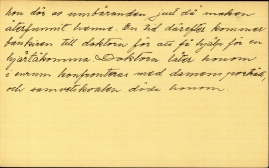 hon dör av umbäranden, just då maken
återfunnit henne. En tid därefter kommer
bankiren till doktorn för att få hjälp för en
hjärtåkomma. Doktorn låter honom
i enrum konfronteras med damens porträtt,
och samvetskvalen döda honom.